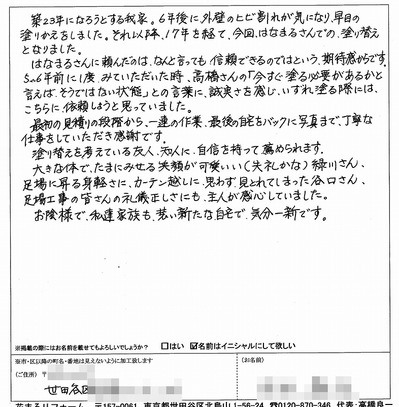 築23年になろうとする我家。6年後に外壁のヒビ割れが気になり、早目の
塗りかえをしました。それ以降、17年を経て、今回、はなまるさんでの、塗り替え
となりました。
はなまるさんに頼んだのは、なんと言っても信頼できるのではという、期待感からです。
5〜6年前に1度、みていただいた時、高橋さんの「今すぐ塗る必要があるかと
言えば、そうではない状態」との言葉に、誠実さを感じ、いずれ塗る際には、
こちらに依頼しようと思っていました。
最初の見積りの段階から、一連の作業、最後の自宅をバックに写真まで、丁寧な
仕事をしていただき感謝です。
塗り替えを考えている友人、知人に、自信を持って薦められます。
大きな体で、たまにみせる笑顔が可愛いい(失礼かな)緑川さん、
足場に昇る身軽さに、カーテン越しに、思わず見とれてしまった谷口さん、
足場工事の皆さんの礼儀正しさにも、主人が感心していました。
お陰様で、私達家族も、装い新たな自宅で、気分一新です。
※掲載の際にはお名前を載せてもよろしいでしょうか? □はい ☑名前はイニシャルにして欲しい
※市・区以降の町名・番地は見えないように加工致します
(ご住所) 〒
(お名前)
世田谷区
花まるリフォーム 〒157-0061 東京都世田谷区北烏山1-56-24 ☎0120-870-346 代表:高橋良一